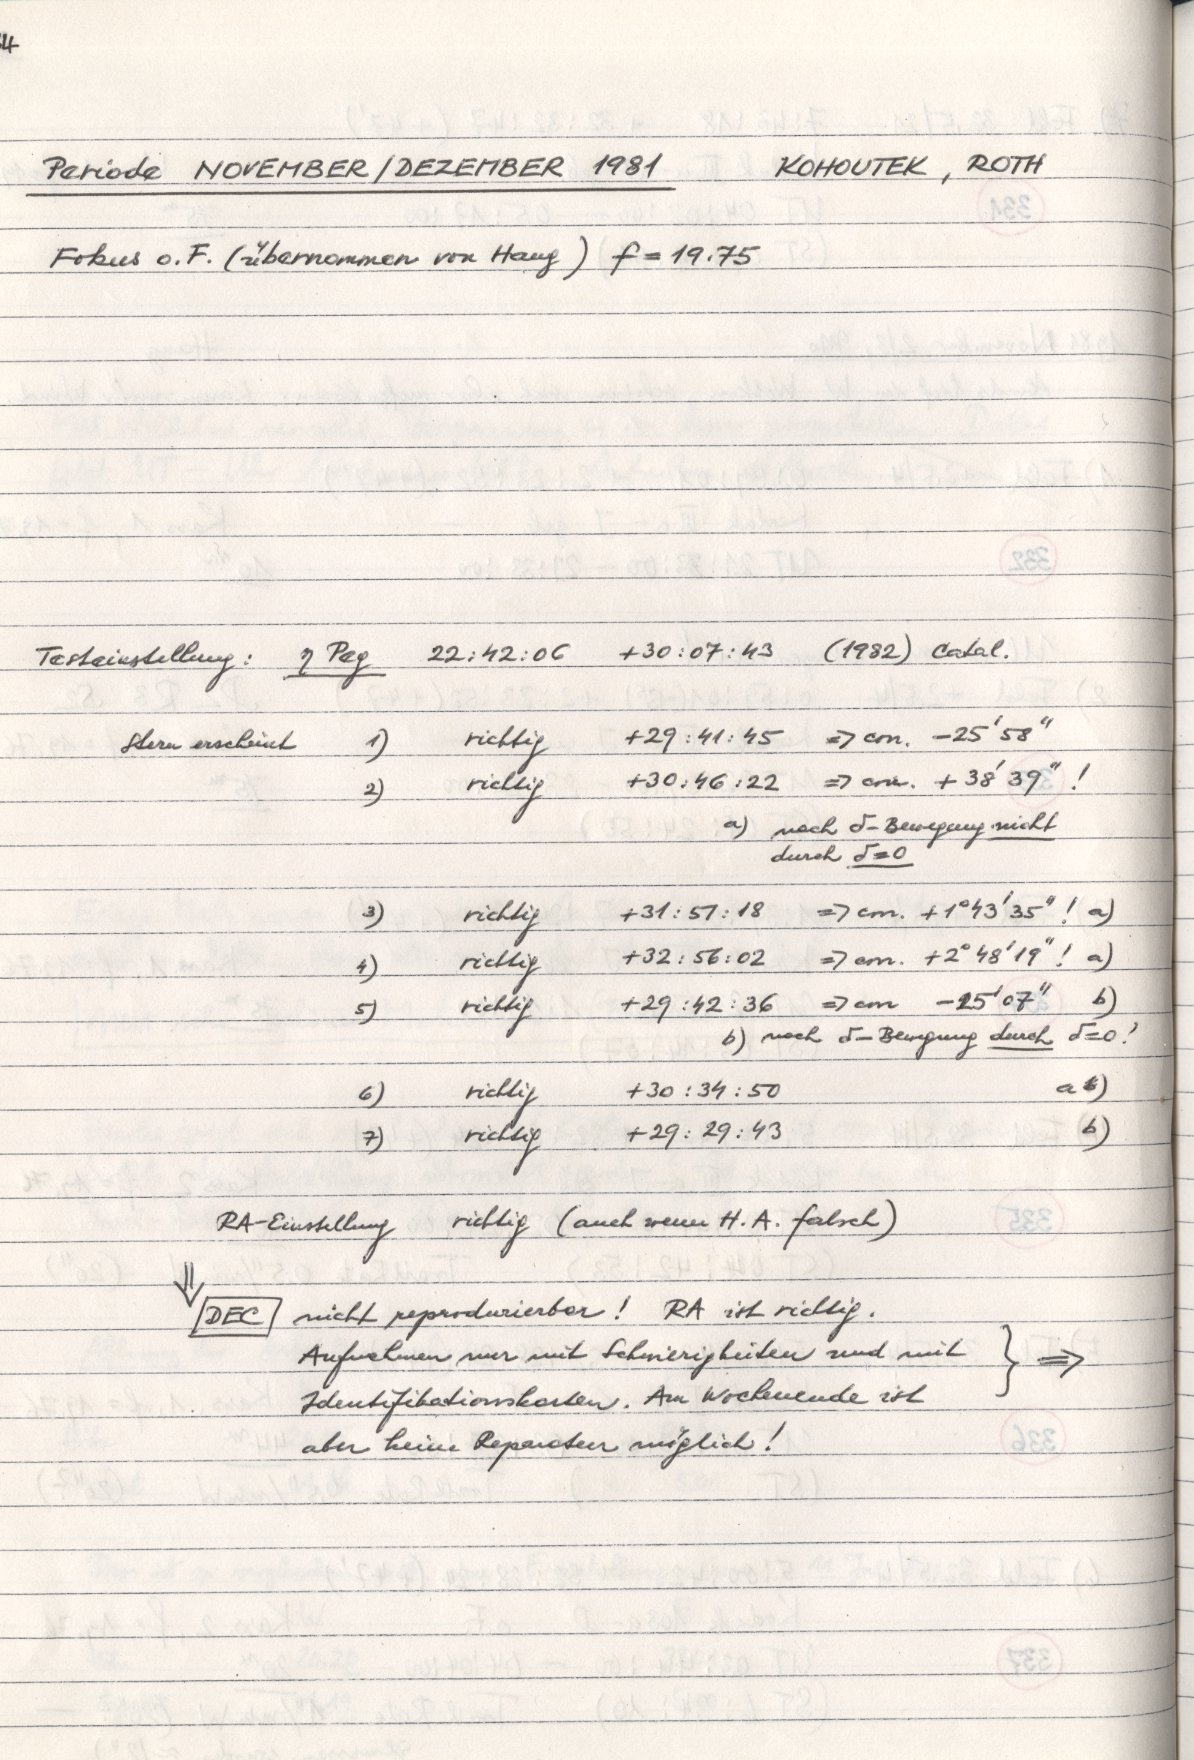 4
Periode NOVEMBER/DEZEMBER 1981 KOHOUTEK, ROTH
Fokus o.F. (übernommen von Haug) f = 19.75
Testeinstellung: η Peg 22:42:06 +30:07:43 (1982) Catal.
Stern erscheint 1) richtig +29:41:45 => corr. -25'58"
2) richtig +30:46:22 => corr. +38'39" !
a) nach δ-Bewegung nicht
durch δ=0
3) richtig +31:51:18 => corr. +1°43'35" ! a)
4) richtig +32:56:02 => corr. +2°48'19" ! a)
5) richtig +29:42:36 => corr -25'07" b)
b) nach δ-Bewegung durch δ=0!
6) richtig +30:34:50 a)
7) richtig +29:29:43 b)
RA-Einstellung richtig (auch wenn H.A. falsch)
⇓
DEC nicht reproduzierbar! RA ist richtig.
Aufnahmen nur mit Schwierigkeiten und mit } =>
Identifikationskarten. Am Wochenende ist
aber keine Reparatur möglich!